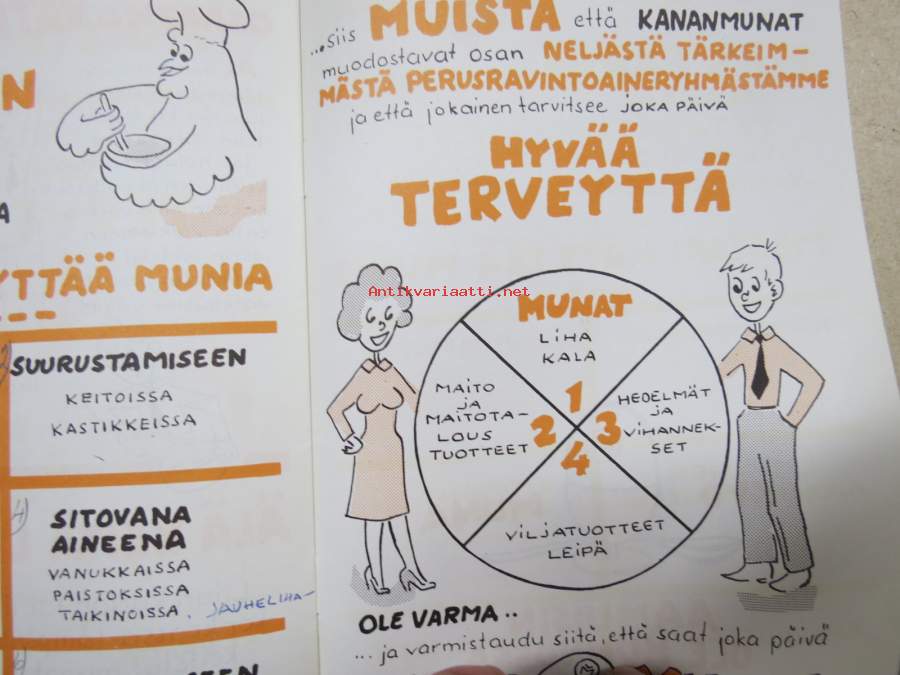 N
A
YTTÄÄ MUNIA
SUURUSTAMISEEN
KEITOISSA
KASTIKKEISSA
4)
SITOVANA
AINEENA
VANUKKAISSA
PAISTOKSISSA
TAIKINOISSA. JAUHELIHA-
SEEN
...siis MUISTA että KANANMUNAT
muodostavat osan NELJÄSTÄ TÄRKEIM-
MÄSTÄ PERUSRAVINTOAINERYHMÄSTÄMME
ja että jokainen tarvitsee JOKA PÄIVÄ
HYVÄÄ
TERVEYTTÄ
Antikvariaatti.net
MUNAT
LIHA
KALA
1
MAITO
ja
MAITOTA-
LOUS
TUOTTEET
2
3
HEDELMÄT
ja
VIHANNEK-
SET
4
VILJATUOTTEET
LEIPÄ
OLE VARMA..
...ja varmistaudu siitä, että saat joka päivä